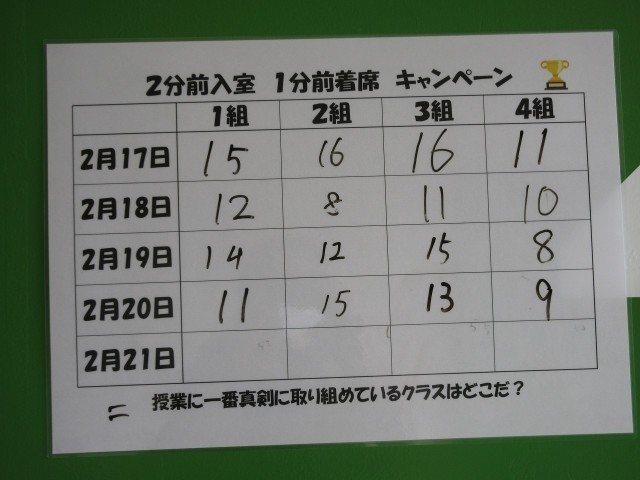 2分前入室 1分前着席 キャンペーン
1組 2組 3組 4組
2月17日 15 16 16 11
2月18日 12 8 11 10
2月19日 14 12 15 8
2月20日 11 15 13 9
2月21日
授業に一番真剣に取り組めているクラスはどこだ?